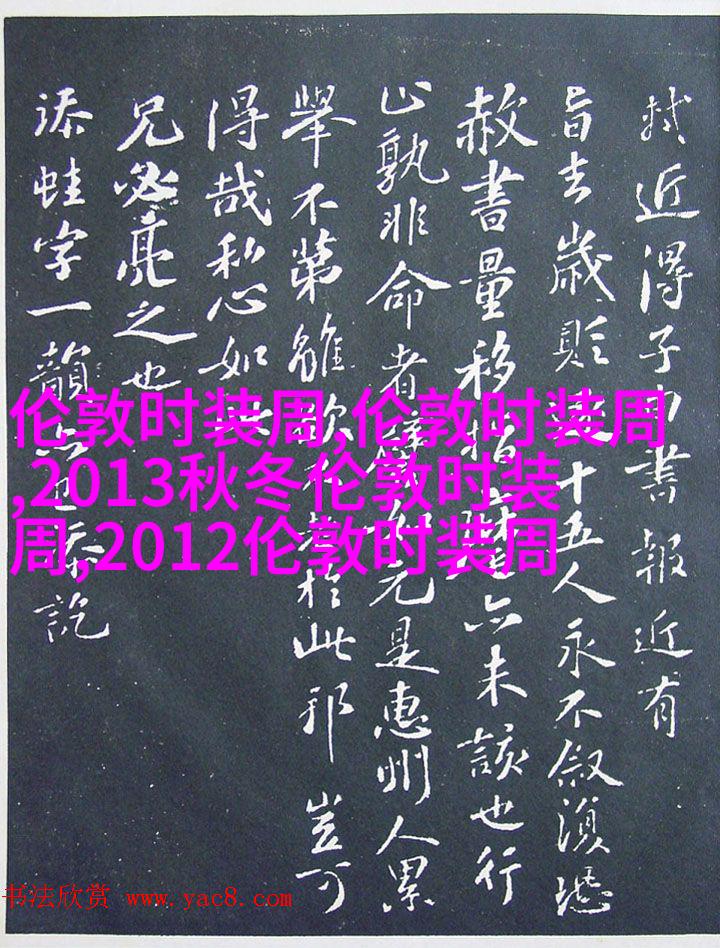 軾近得子由書報近有
旨去歲貶十五人永不叙湏恐
赦書量移指亦未該也行
止孰非命者元是惠州人累
舉不第雖欲於此邪豈可
得哉私心如
兄必亮之也
添蛙字一韻訖
伦敦时装周,伦敦时装周
,2013秋冬伦敦时装
周,2012伦敦时装周
书法欣赏 www.yac8.com